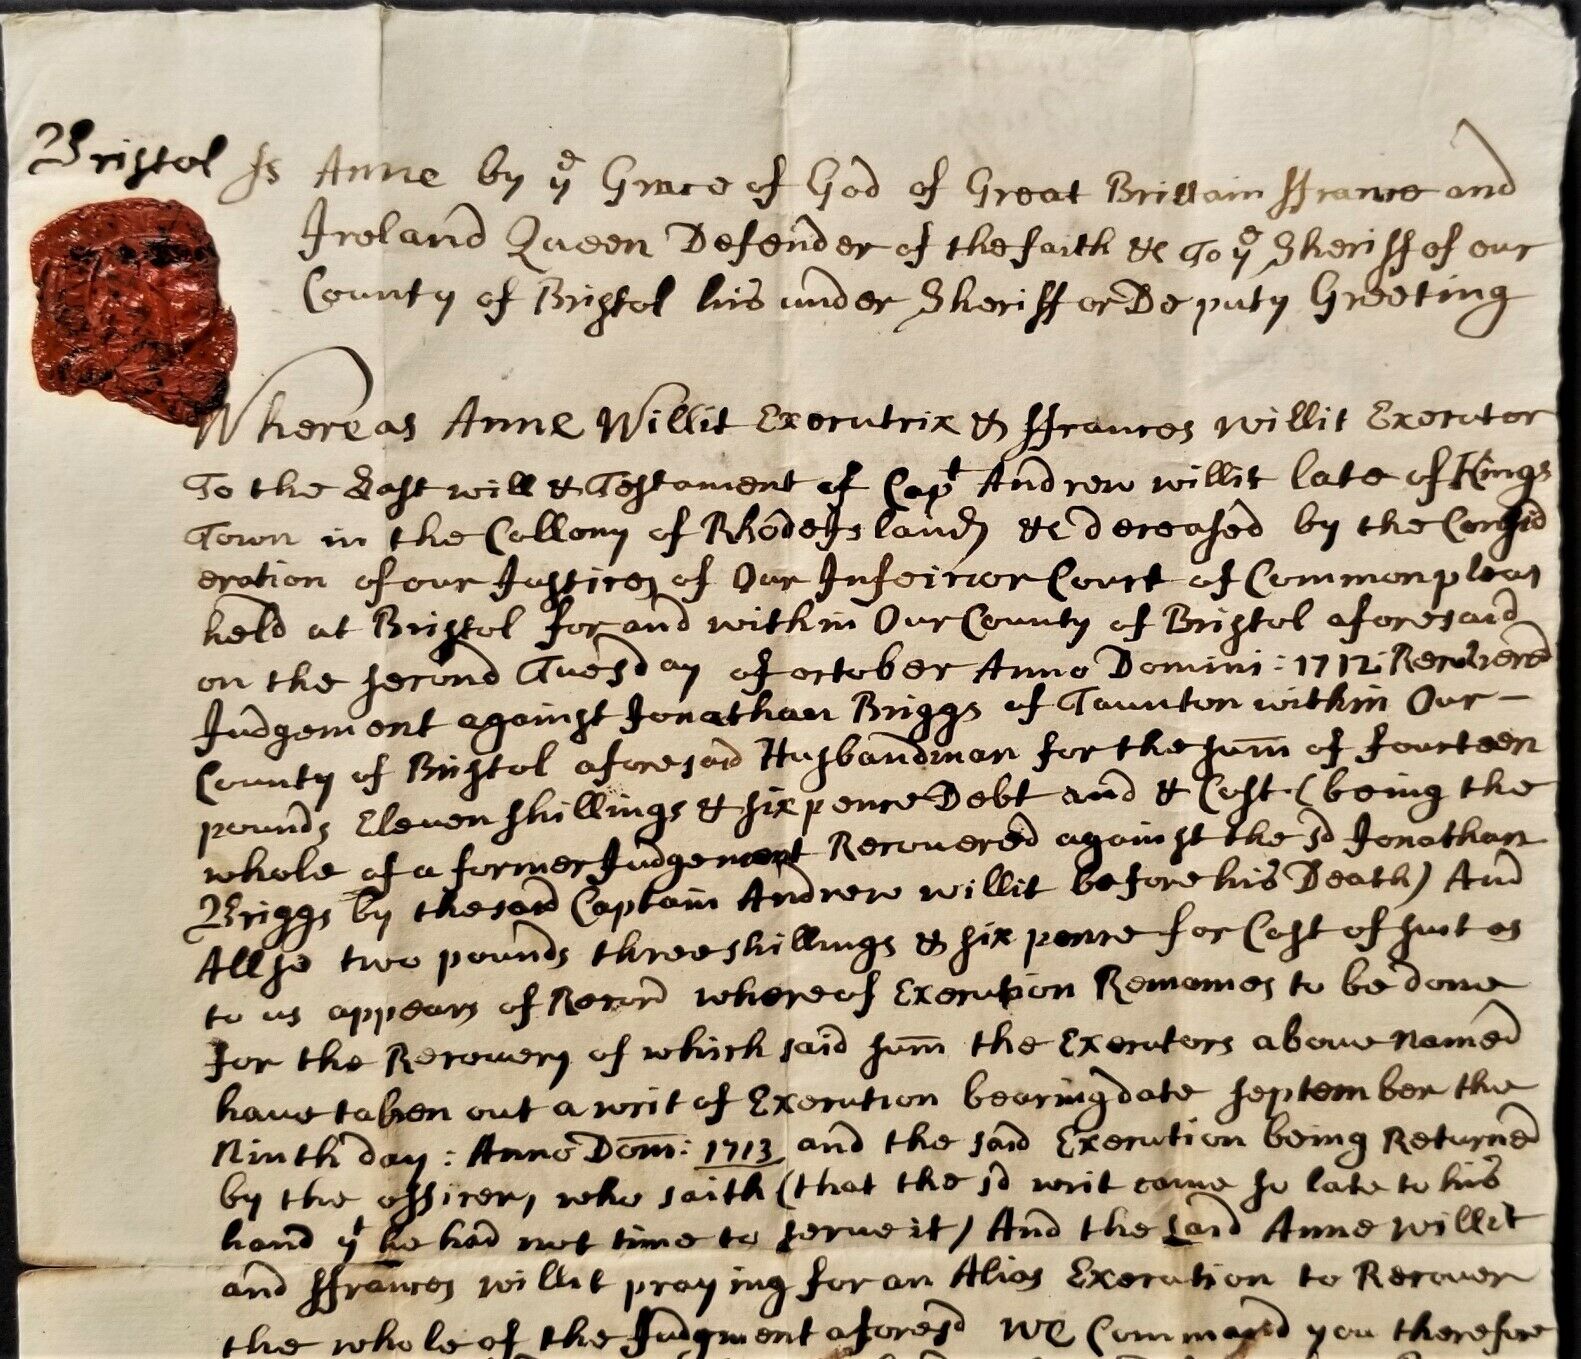 Bristol ss Anne by yᵉ Grace of God of Great Brittain ffrance and
Ireland Queen Defender of the faith &c To yᵉ Sheriff of our
County of Bristol his under Sheriff or Deputy Greeting
Whereas Anne Willit Executrix & ffrances Willit Executor
To the Last will & Testament of Capᵗ Andrew willit late of Kings
Town in the Collony of Rhode Island &c deceased by the Consid
eration of our Justices of Our Infeiriour Court of Common pleas
held at Bristol for and within Our County of Bristol aforesaid
on the second Tuesday of october Anno Domini: 1712 Recovered
Judgement against Jonathan Briggs of Taunton within Our –
County of Bristol aforesaid Husbandman for the sum̄ of fourteen
pounds Eleven shillings & six pence Debt and & Cost (being the
whole of a former Judgement Recouered against the sd Jonathan
Briggs by the said Captain Andrew willit before his Death) And
Allso two pounds three shillings & six pence for Cost of suit as
to us appears of Record whereof Execution Remaines to be done
for the Recouery of which said sum̄ the Executors aboue Named
haue taken out a writ of Execution bearing date september the
Ninth day: Anno Dom̄: 1713 and the said Execution being Returned
by the officer, who saith (that the sd writ came so late to his
hand yᵗ he had not time to serue it) And the said Anne Willit
and ffrances willit praying for an Alias Execution to Recouer
the whole of the Judgment aforesd We Command you therefore